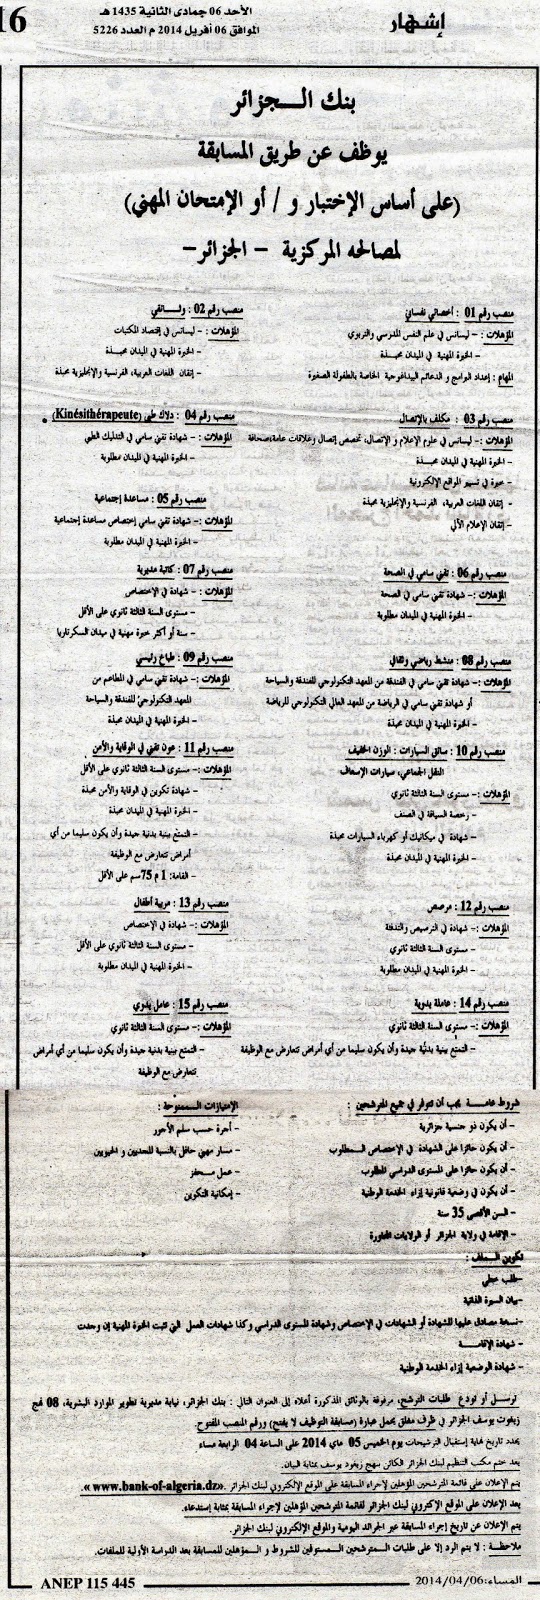 16
الأحد 06 جمادى الثانية 1435 هـ
الموافق 06 أفريل 2014 م العدد 5226
إشهار
بنك الـــجزائر
يوظف عن طريق المسابقة
(على أساس الإختبار و / أو الإمتحان المهني)
لمصالحه المركزية – الجزائر–
منصب رقم 01 : أخصائي نفساني
المؤهلات : – ليسانس في علم النفس المدرسي والتربوي
– الخبرة المهنية في الميدان محبــذة
المهام : إعداد البرامج و الدعائم البيداغوجية الخاصة بالطفولة الصغيرة
منصب رقم 02 : وثــائقي
المؤهلات : – ليسانس في إقتصاد المكتبات
– الخبرة المهنية في الميدان محبــذة
– إتقان اللغات العربية، الفرنسية والإنجليزية محبذة
منصب رقم 03 : مكلف بالإتصال
المؤهلات :– ليسانس في علوم الإعلام و الإتصال، تخصص إتصال وعلاقات عامة،صحافة
– الخبرة المهنية في الميدان محبــذة
– خبرة في تسيير المواقع الإلكترونية
– إتقان اللغات العربية، الفرنسية والإنجليزية محبذة
– إتقان الإعلام الآلي
منصب رقم 04 : دلاك طبي (Kinésithérapeute)
المؤهلات :– شهادة تقني سامي في التدليك الطبي
– الخبرة المهنية في الميدان مطلوبة
منصب رقم 05 : مساعدة إجتماعية
المؤهلات :– شهادة تقني سامي إختصاص مساعدة إجتماعية
– الخبرة المهنية في الميدان مطلوبة
منصب رقم 06 : تقني سامي في الصحة
المؤهلات :– شهادة تقني سامي في الصحة
– الخبرة المهنية في الميدان مطلوبة
منصب رقم 07 : كاتبة مديرية
المؤهلات :– شهادة في الإختصاص
– مستوى السنة الثالثة ثانوي على الأقل
– سنة أو أكثر خبرة مهنية في ميدان السكرتاريا
منصب رقم 08 : منشط رياضي وثقافي
المؤهلات :– شهادة تقني سامي في الفندقة من المعهد التكنولوجي للفندقة والسياحة
أو شهادة تقني سامي في الرياضة من المعهد العالي التكنولوجي للرياضة
– الخبرة المهنية في الميدان محبذة
منصب رقم 09 : طباخ رئيسي
المؤهلات :– شهادة تقني سامي في المطاعم من
المعهد التكنولوجي للفندقة والسياحة
– الخبرة المهنية في الميدان محبذة
منصب رقم 10 : سائق السيارات : الوزن الخفيف
النقل الجماعي، سيارات الإسعاف
المؤهلات :– مستوى السنة الثالثة ثانوي
– رخصة السياقة في الصنف
– شهادة في ميكانيك أو كهرباء السيارات محبذة
– الخبرة المهنية في الميدان محبذة
منصب رقم 11 : عون تقني في الوقاية والأمن
المؤهلات :– مستوى السنة الثالثة ثانوي على الأقل
– شهادة تكوين في الوقاية والأمن محبذة
– الخبرة المهنية في الميدان محبذة
– التمتع ببنية بدنية جيدة وأن يكون سليما من أي
أمراض تتعارض مع الوظيفة
– القامة: 1 م 75سم على الأقل
منصب رقم 12 : مرصص
المؤهلات :– شهادة في الترصيص والتدفئة
– مستوى السنة الثالثة ثانوي
– الخبرة المهنية في الميدان مطلوبة
منصب رقم 13 : مربية أطفال
المؤهلات :– شهادة في الإختصاص
– مستوى السنة الثالثة ثانوي على الأقل
– الخبرة المهنية في الميدان مطلوبة
منصب رقم 14 : عاملة يدوية
المؤهلات :– مستوى السنة الثالثة ثانوي
– التمتع ببنية بدنية جيدة وأن يكون سليما من أي أمراض تتعارض مع الوظيفة
منصب رقم 15 : عامل يدوي
المؤهلات :– مستوى السنة الثالثة ثانوي
– التمتع ببنية بدنية جيدة وأن يكون سليما من أي أمراض
تتعارض مع الوظيفة
شروط عامــة يجب أن تتوفر في جميع المترشحين :
– أن يكون ذو جنسية جزائرية
– أن يكون حائزا على الشهادة في الإختصاص المــطلوب
– أن يكون حائزا على المستوى الدراسي المطلوب
– أن يكون في وضعية قانونية إزاء الخدمة الوطنية
– السن الأقصى 35 سنة
– الإقامة في ولاية الجزائر أو الولايات المجاورة
الإمتيازات الــممنوحة :
– أجرة حسب سلم الأجور
– مسار مهني حافل بالنسبة للجديين و الحيويين
– عمل مــحفز
– إمكانية التكوين
تكوين المــلف :
–طلب خطي
–بيان السيرة الذاتية
–نسخة مصادق عليها للشهادة أو الشهادات في الإختصاص وشهادة المستوى الدراسي وكذا شهادات العمل التي تثبت الخبرة المهنية إن وجدت
– شهادة الإقامــة
– شهادة الوضعية إزاء الخدمة الوطنية
ترسل أو تودع طلبات الترشح، مرفوقة بالوثائق المذكورة أعلاه إلى العنوان التالي : بنك الجزائر، نيابة مديرية تطوير الموارد البشرية، 08 نهج
زيغوت يوسف الجزائر في ظرف مغلق يحمل عبارة (مسابقة التوظيف لا يفتح) ورقم المنصب المفتوح.
يحدد تاريخ نهاية إستقبال الترشيحات يوم الخميس 05 ماي 2014 على الساعة 04 الرابعة مساء
يعد ختم مكتب التنظيم لبنك الجزائر الكائن بنهج زيغود يوسف بمثابة البيان.
يتم الإعلان على قائمة المترشحين المؤهلين لإجراء المسابقة على الموقع الإلكتروني لبنك الجزائر «www.bank-of-algeria.dz».
يعد الإعلان على الموقع الإلكتروني لبنك الجزائر لقائمة المترشحين المؤهلين لإجراء المسابقة بمثابة إستدعاء.
يتم الإعلان عن تاريخ إجراء المسابقة عبر الجرائد اليومية والموقع الإلكتروني لبنك الجزائر.
ملاحظــة : لا يتم الرد إلا على طلبات المــترشحين المستوفين للشروط و المــؤهلين للمسابقة بعد الدراسة الأولية للملفات.
المساء:2014/04/06
ANEP 115 445